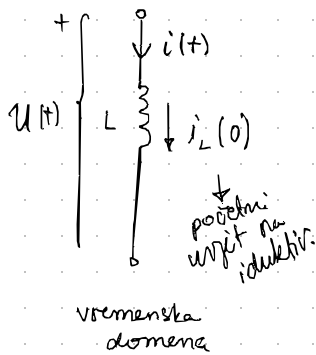 +
i(t)
u(t)
L
i_L(0)
početni
uvjet na
iduktiv.
vremenska
domena